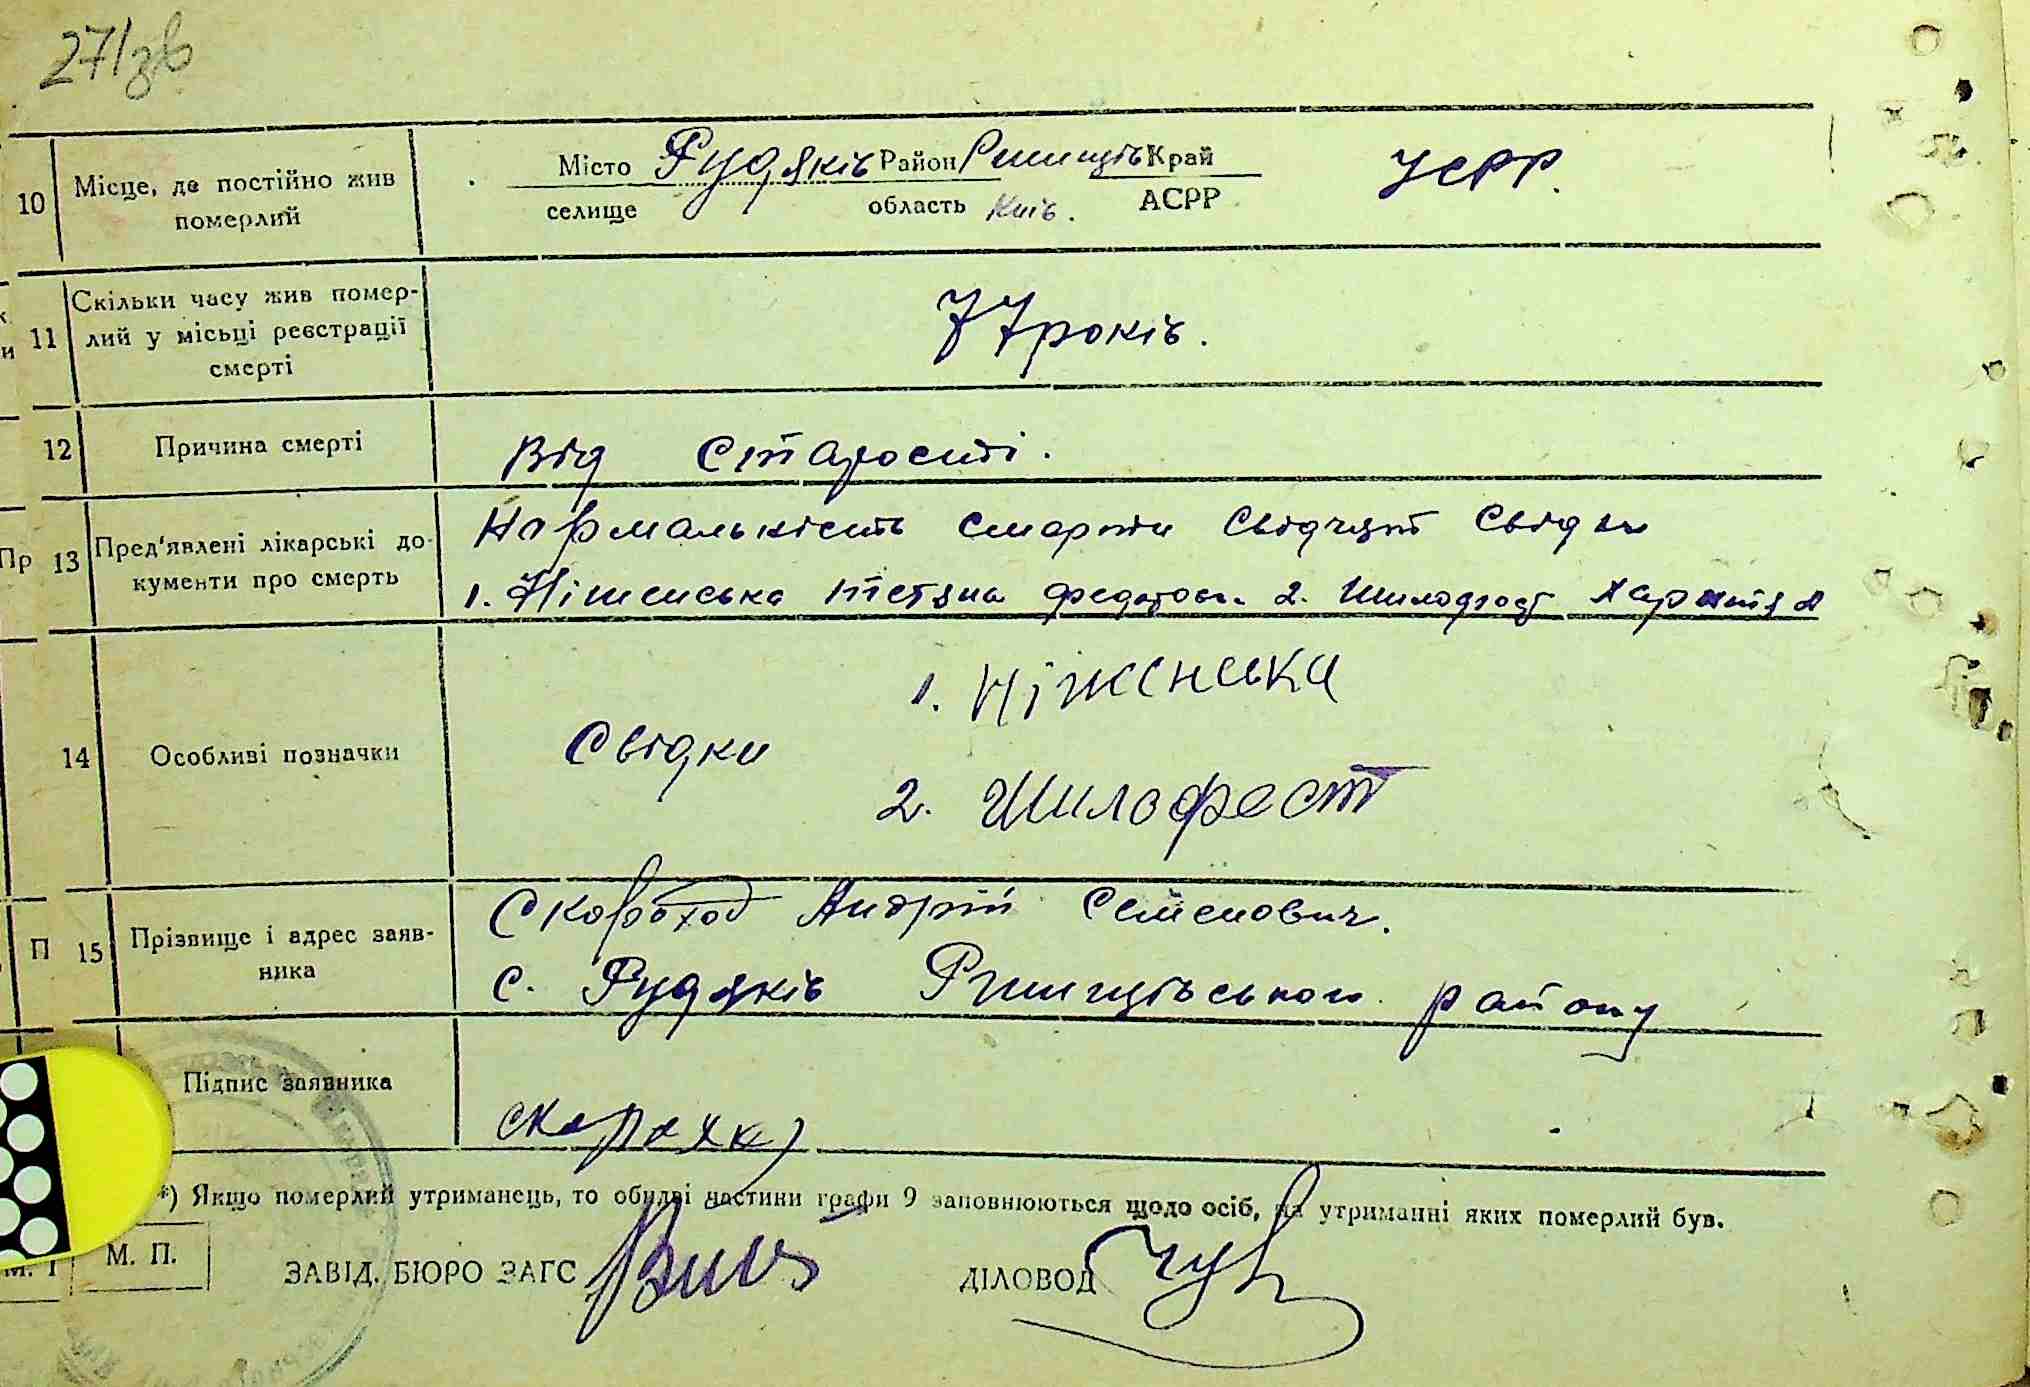 271зв
10 Місце, де постійно жив померлий
Місто Рудяків Район Ржищів Край УСРР.
селище область Київ. АСРР
11 Скільки часу жив помер-
лий у місьці реєстрації
смерті
77 років.
12 Причина смерті
Від старости.
13 Пред'явлені лікарські до-
кументи про смерть
Нормальність смерти свідчут свідки
1. Ніженська Тетяна 2. Шилофост
14 Особливі позначки
Свідки
1. Ніженська
2. Шилофост
15 Прізвище і адрес заяв-
ника
Скороход Андрій Семенович.
с. Рудяків Ржищівського району
Підпис заявника
*) Якщо померлий утриманець, то обидві частини графи 9 заповнюються щодо осіб, на утриманні яких померлий був.
М. П.
ЗАВІД. БЮРО ЗАГС
ДІЛОВОД